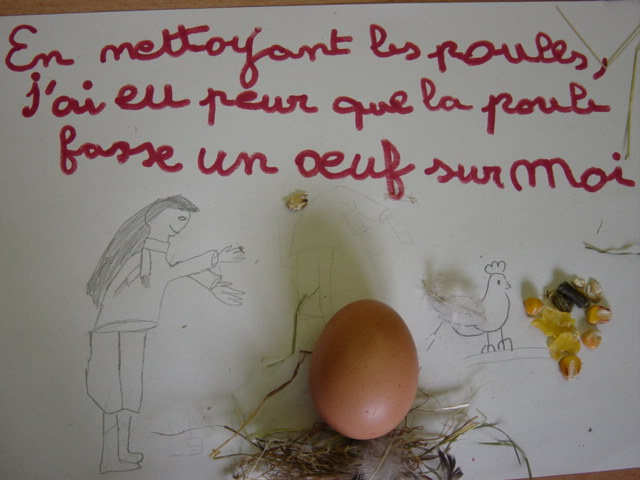 En nettoyant les poules,
j'ai eu peur que la poule
fasse un œuf sur moi